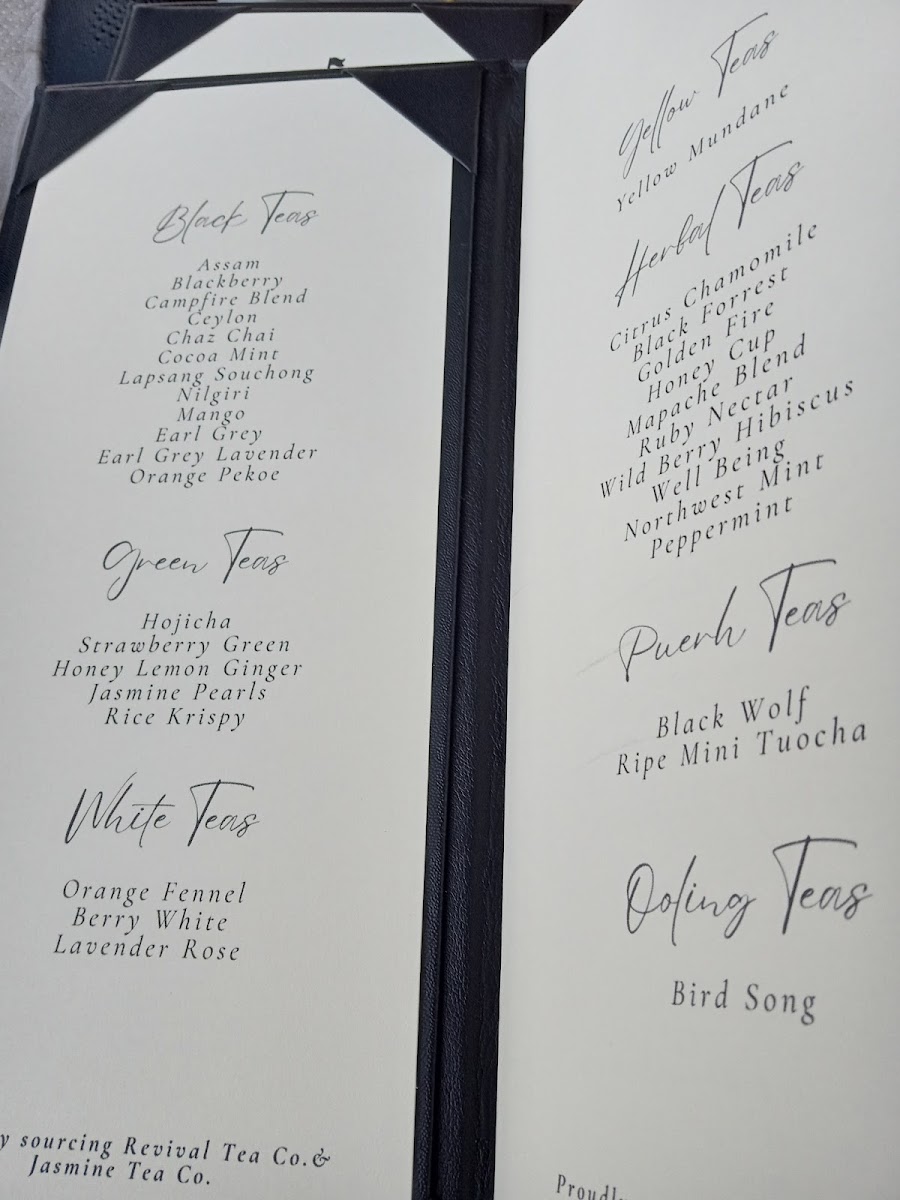 Black Teas
Assam
Blackberry
Campfire Blend
Ceylon
Chaz Chai
Cocoa Mint
Lapsang Souchong
Nilgiri
Mango
Earl Grey
Earl Grey Lavender
Orange Pekoe
Green Teas
Hojicha
Strawberry Green
Honey Lemon Ginger
Jasmine Pearls
Rice Krispy
White Teas
Orange Fennel
Berry White
Lavender Rose
y sourcing Revival Tea Co.&
Jasmine Tea Co.
Yellow Teas
Yellow Mundane
Herbal Teas
Citrus Chamomile
Black Forrest
Golden Fire
Honey Cup
Mapache Blend
Ruby Nectar
Wild Berry Hibiscus
Well Being
Northwest Mint
Peppermint
Puerh Teas
Black Wolf
Ripe Mini Tuocha
Ooling Teas
Bird Song
Proudl